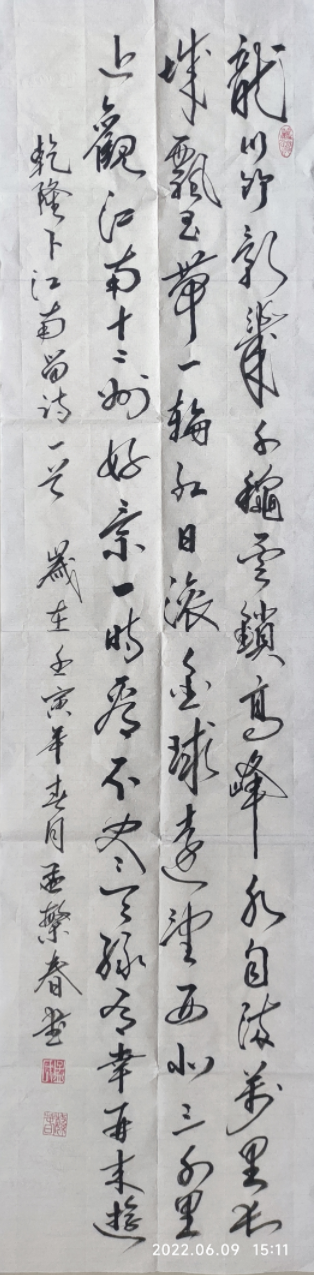 龍川竹影幾千穐云鎖高峰水自流萬里長
城飄玉帶一輪紅日滾金球遠望西北三千里
近觀江南十二州好景一時看不尽天緣有幸再來遊
乾隆下江南留詩一首 歲在壬寅年春月孟繁春書
2022.06.09 15:11